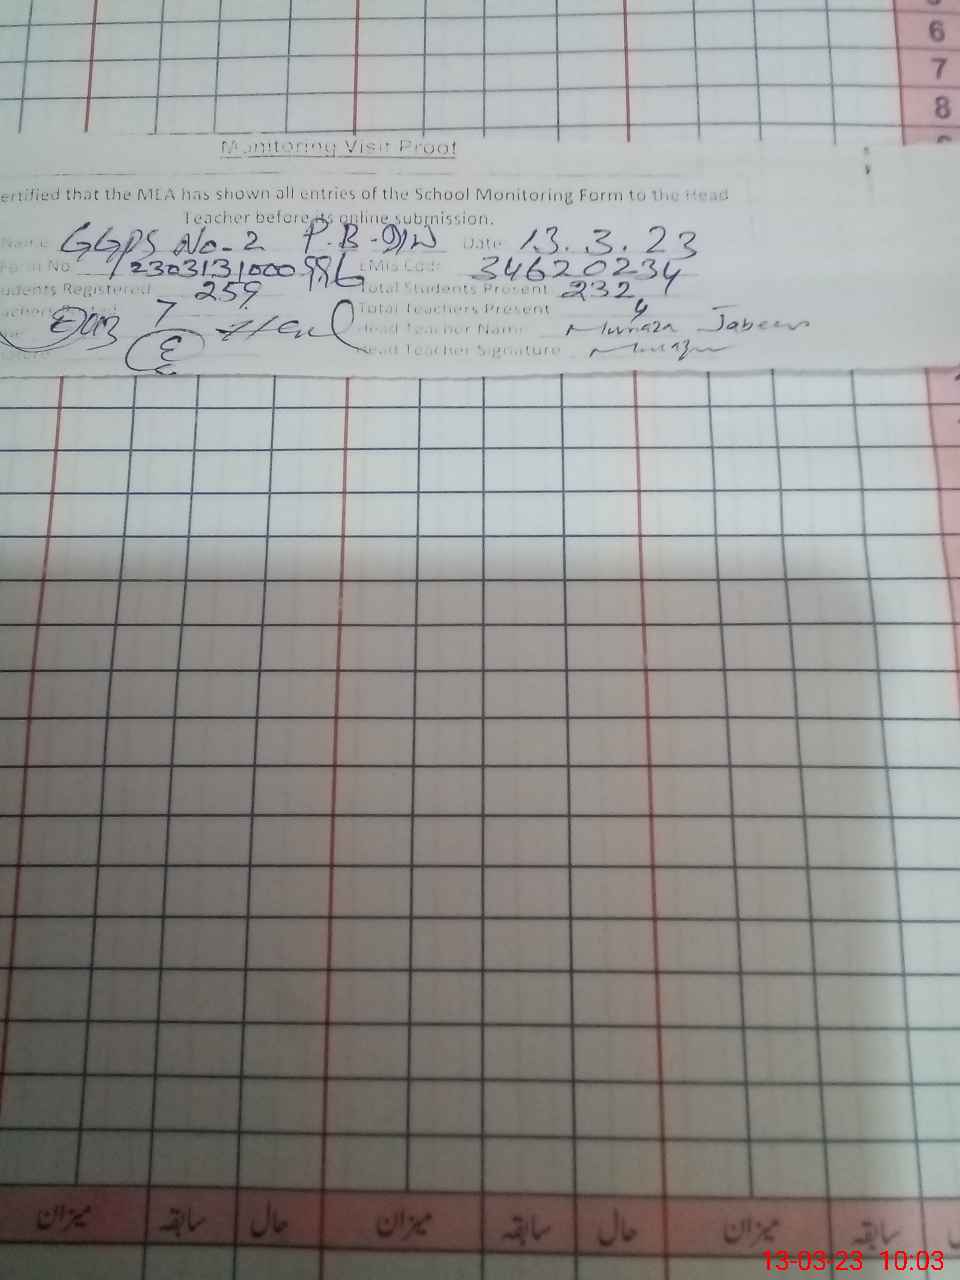 6
7
8
Monitoring Visit Proof
ertified that the MEA has shown all entries of the School Monitoring Form to the Head
Teacher before its online submission.
Name GGPS No-2 P.B-DIN Date 13.3.23
Form No 12303131000996 EMIS Code 34620234
udents Registered 259 Total Students Present 232
achers 7 Total Teachers Present
Head Teacher Name Munaza Jabeen
Head Teacher Signature
میزان سابقہ حال میزان سابقہ حال میزان سابقہ
13-03-23 10:03